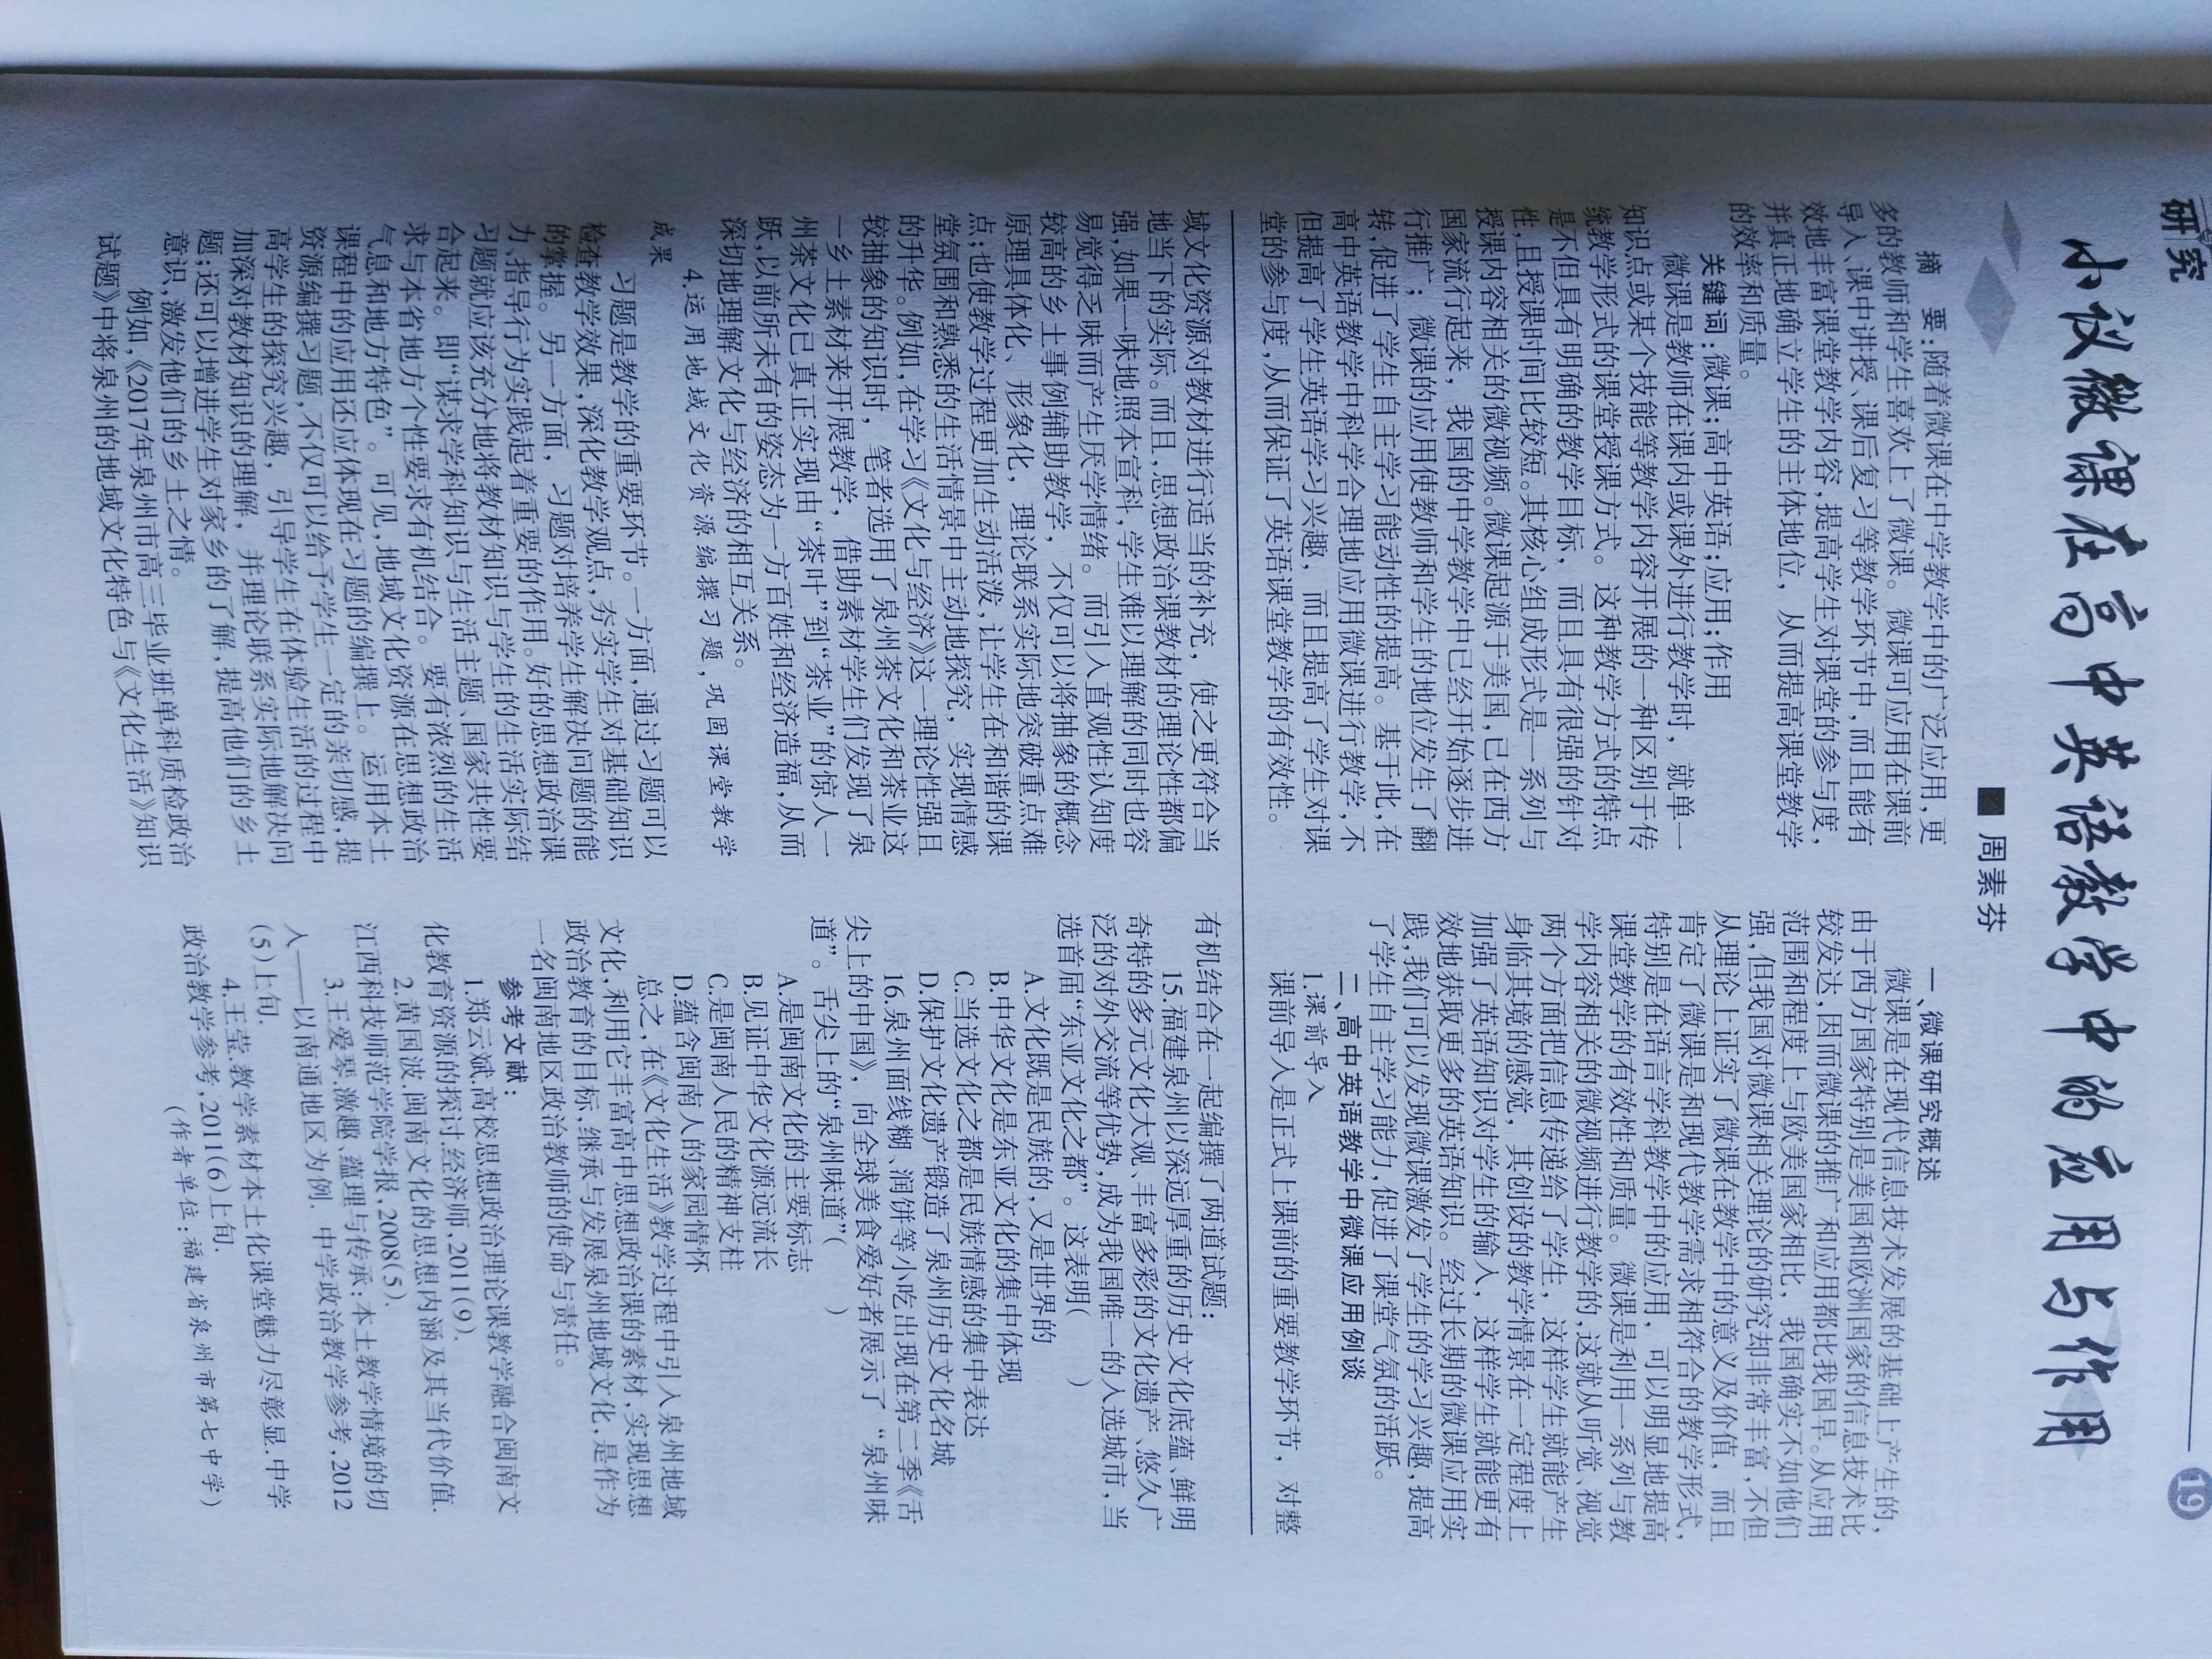 研究
19
小议微课在高中英语教学中的应用与作用
■ 周素芬
摘 要:随着微课在中学教学中的广泛应用,更
多的教师和学生喜欢上了微课。微课可应用在课前
导入、课中讲授、课后复习等教学环节中,而且能有
效地丰富课堂教学内容,提高学生对课堂的参与度,
并真正地确立学生的主体地位，从而提高课堂教学
的效率和质量。
关键词:微课;高中英语;应用;作用
微课是教师在课内或课外进行教学时，就单一
知识点或某个技能等教学内容开展的一种区别于传
统教学形式的课堂授课方式。这种教学方式的特点
是不但具有明确的教学目标，而且具有很强的针对
性,且授课时间比较短。其核心组成形式是一系列与
授课内容相关的微视频。微课起源于美国,已在西方
国家流行起来，我国的中学教学中已经开始逐步进
行推广；微课的应用使教师和学生的地位发生了翻
转,促进了学生自主学习能动性的提高。基于此,在
高中英语教学中科学合理地应用微课进行教学,不
但提高了学生英语学习兴趣，而且提高了学生对课
堂的参与度,从而保证了英语课堂教学的有效性。
一、微课研究概述
微课是在现代信息技术发展的基础上产生的,
由于西方国家特别是美国和欧洲国家的信息技术比
较发达,因而微课的推广和应用都比我国早。从应用
范围和程度上与欧美国家相比，我国确实不如他们
强,但我国对微课相关理论的研究却非常丰富,不但
从理论上证实了微课在教学中的意义及价值，而且
肯定了微课是和现代教学需求相符合的教学形式,
特别是在语言学科教学中的应用，可以明显地提高
课堂教学的有效性和质量。微课是利用一系列与教
学内容相关的微视频进行教学的,这就从听觉、视觉
两个方面把信息传递给了学生，这样学生就能产生
身临其境的感觉，其创设的教学情景在一定程度上
加强了英语知识对学生的输入，这样学生就能更有
效地获取更多的英语知识。经过长期的微课应用实
践,我们可以发现微课激发了学生的学习兴趣,提高
了学生自主学习能力,促进了课堂气氛的活跃。
二、高中英语教学中微课应用例谈
1.课前导入
课前导入是正式上课前的重要教学环节，对整
域文化资源对教材进行适当的补充，使之更符合当
地当下的实际。而且,思想政治课教材的理论性都偏
强,如果一味地照本宣科,学生难以理解的同时也容
易觉得乏味而产生厌学情绪。而引入直观性认知度
较高的乡土事例辅助教学，不仅可以将抽象的概念
原理具体化、形象化，理论联系实际地突破重点难
点;也使教学过程更加生动活泼,让学生在和谐的课
堂氛围和熟悉的生活情景中主动地探究，实现情感
的升华。例如,在学习《文化与经济》这一理论性强且
较抽象的知识时，笔者选用了泉州茶文化和茶业这
一乡土素材来开展教学，借助素材学生们发现了泉
州茶文化已真正实现由“茶叶”到“茶业”的惊人一
跃,以前所未有的姿态为一方百姓和经济造福,从而
深切地理解文化与经济的相互关系。
4.运用地域文化资源编撰习题,巩固课堂教学
成果
习题是教学的重要环节。一方面,通过习题可以
检查教学效果,深化教学观点,夯实学生对基础知识
的掌握。另一方面，习题对培养学生解决问题的能
力、指导行为实践起着重要的作用。好的思想政治课
习题就应该充分地将教材知识与学生的生活实际结
合起来。即“谋求学科知识与生活主题、国家共性要
求与本省地方个性要求有机结合。要有浓烈的生活
气息和地方特色”。可见,地域文化资源在思想政治
课程中的应用还应体现在习题的编撰上。运用本土
资源编撰习题,不仅可以给予学生一定的亲切感,提
高学生的探究兴趣，引导学生在体验生活的过程中
加深对教材知识的理解，并理论联系实际地解决问
题;还可以增进学生对家乡的了解,提高他们的乡土
意识,激发他们的乡土之情。
例如,《2017年泉州市高三毕业班单科质检政治
试题》中将泉州的地域文化特色与《文化生活》知识
有机结合在一起编撰了两道试题:
15.福建泉州以深远厚重的历史文化底蕴、鲜明
奇特的多元文化大观、丰富多彩的文化遗产、悠久广
泛的对外交流等优势,成为我国唯一的入选城市,当
选首届“东亚文化之都”。这表明(　　)
A.文化既是民族的,又是世界的
B.中华文化是东亚文化的集中体现
C.当选文化之都是民族情感的集中表达
D.保护文化遗产锻造了泉州历史文化名城
16.泉州面线糊、润饼等小吃出现在第二季《舌
尖上的中国》，向全球美食爱好者展示了“泉州味
道”。舌尖上的“泉州味道”(　　)
A.是闽南文化的主要标志
B.见证中华文化源远流长
C.是闽南人民的精神支柱
D.蕴含闽南人的家园情怀
总之,在《文化生活》教学过程中引入泉州地域
文化,利用它丰富高中思想政治课的素材,实现思想
政治教育的目标,继承与发展泉州地域文化,是作为
一名闽南地区政治教师的使命与责任。
参考文献:
1.郑云斌.高校思想政治理论课教学融合闽南文
化教育资源的探讨.经济师,2011(9).
2.黄国波.闽南文化的思想内涵及其当代价值.
江西科技师范学院学报,2008(5).
3.王爱琴.激趣、蕴理与传承:本土教学情境的切
入——以南通地区为例. 中学政治教学参考,2012
(5)上旬.
4.王莹.教学素材本土化课堂魅力尽彰显.中学
政治教学参考,2011(6)上旬.
(作者单位:福建省泉州市第七中学)